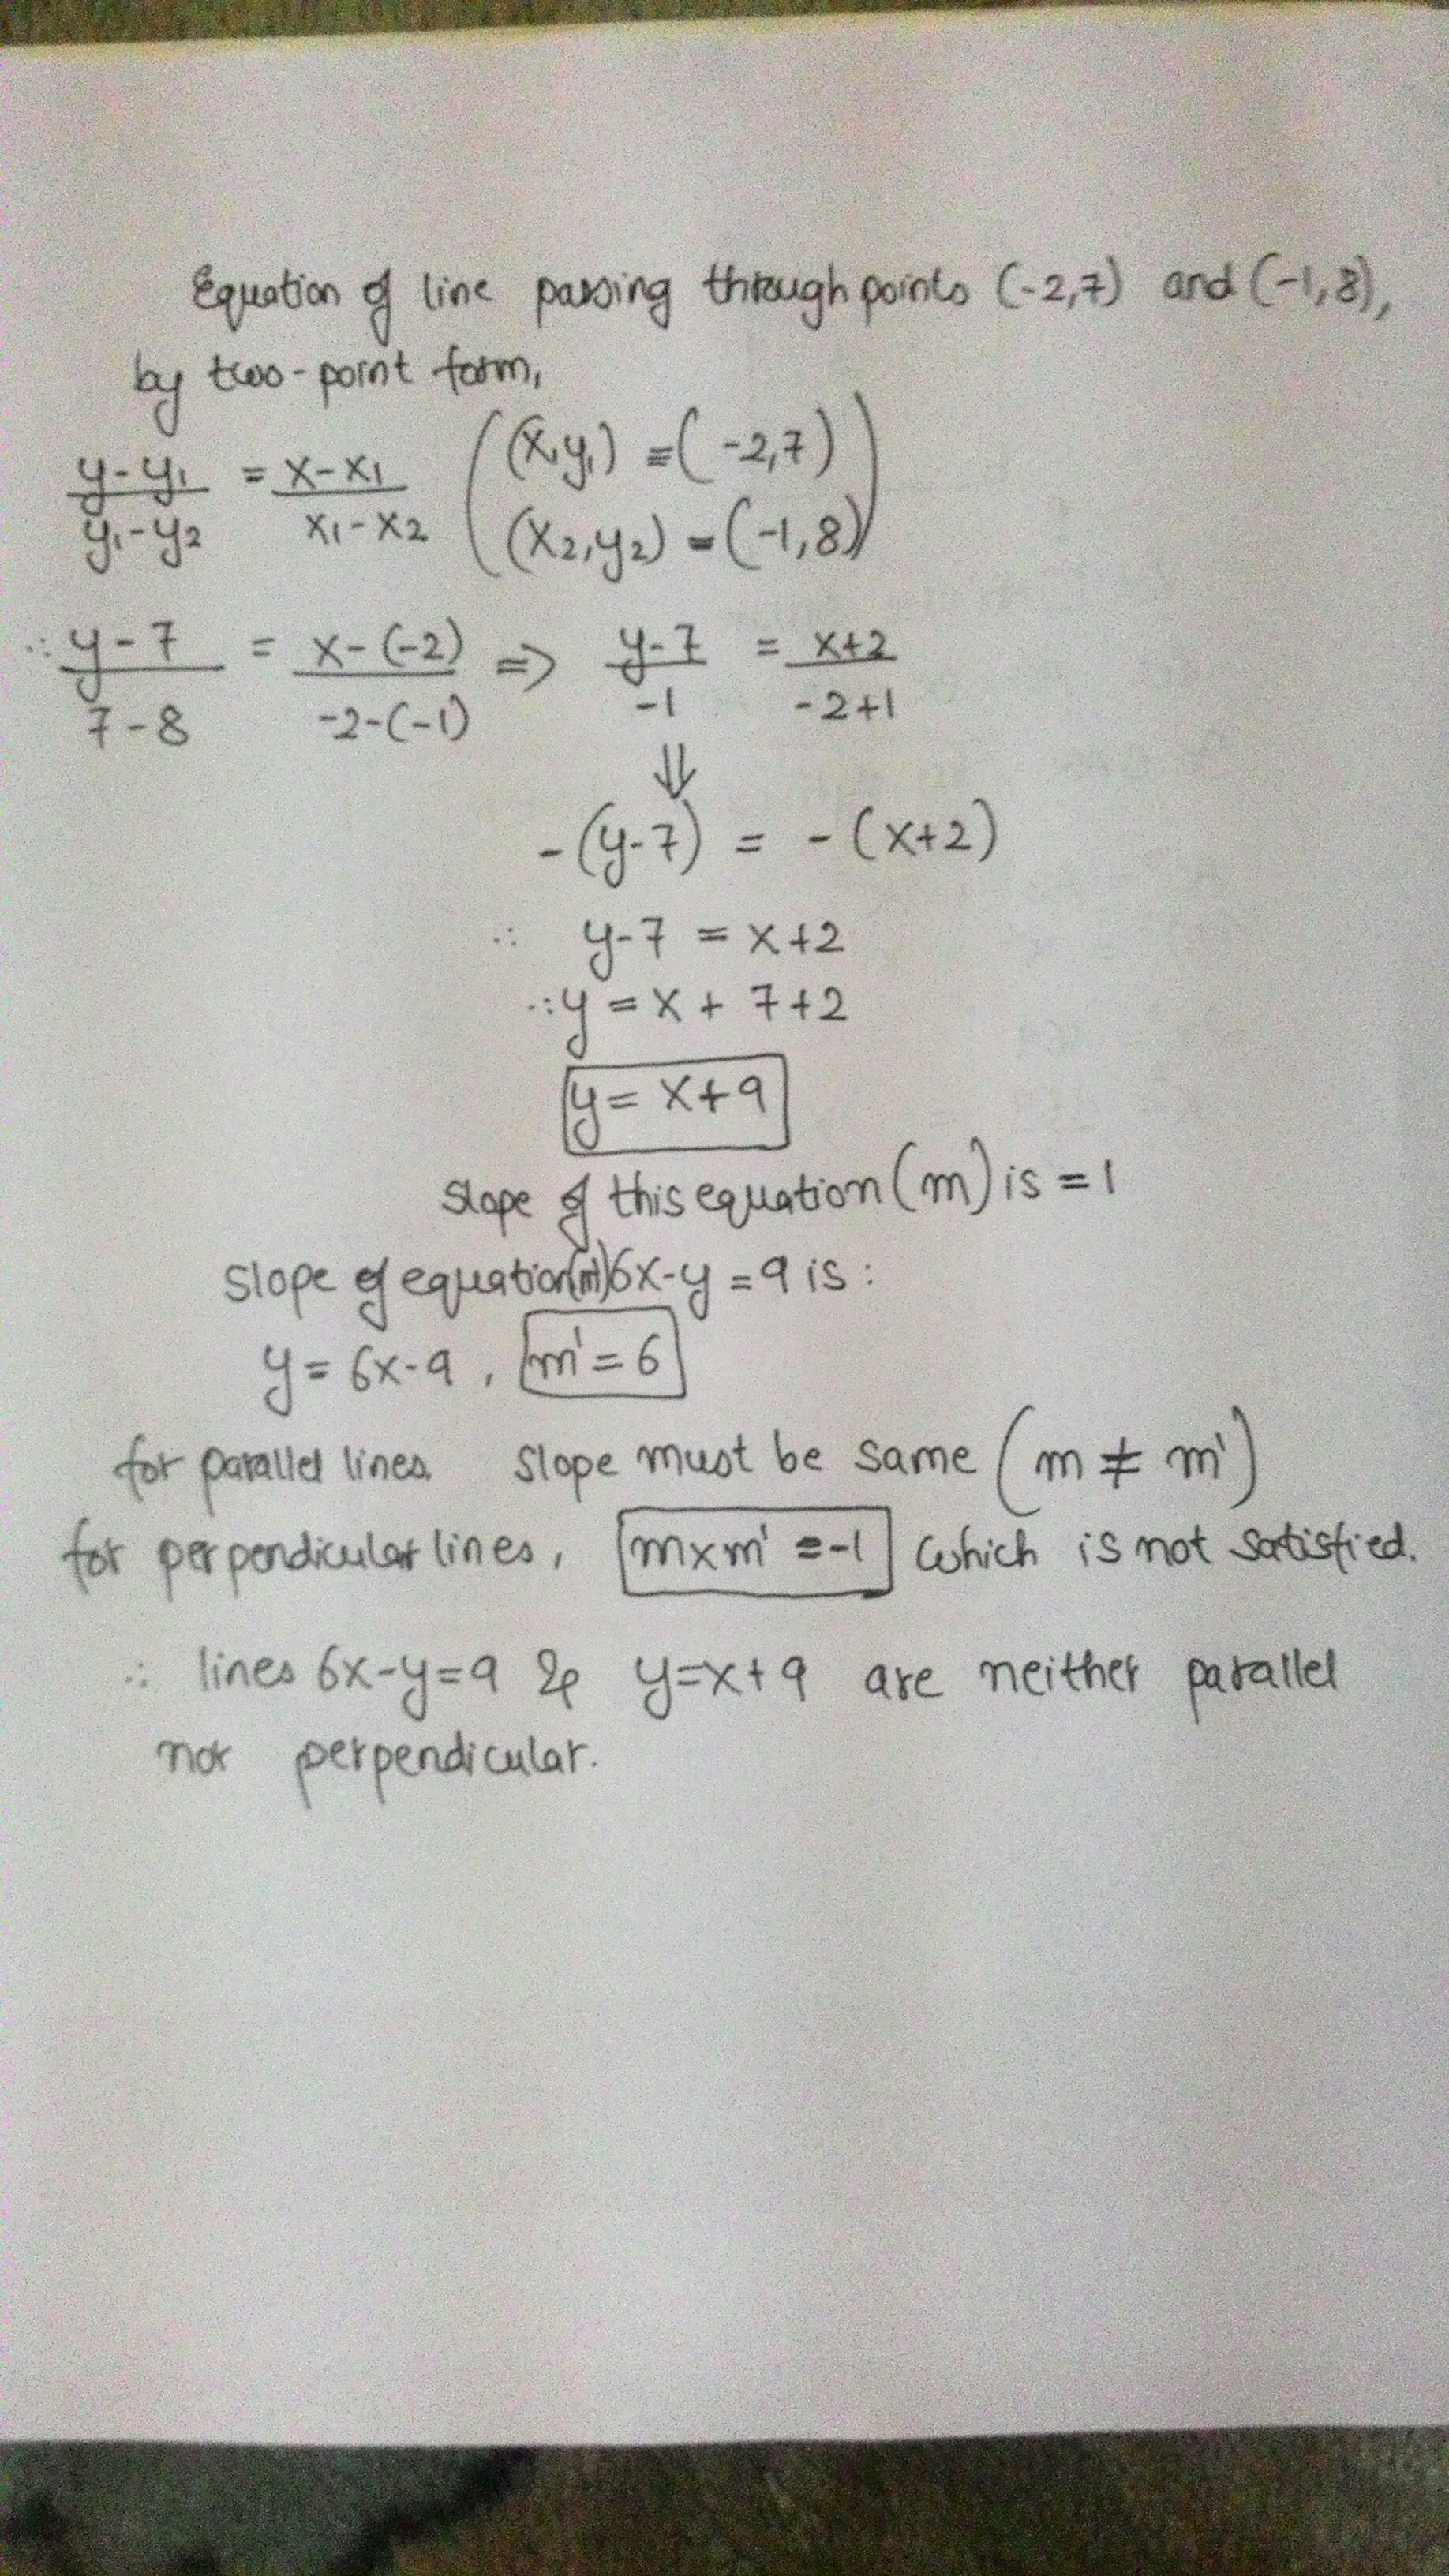 Equation of line passing through points (-2,7) and (-1,8),
by two-point form,
y-y₁/y₁-y₂ = x-x₁/x₁-x₂ ((x₁y₁) = (-2,7) (x₂,y₂) = (-1,8))
∴ y-7/7-8 = x-(-2)/-2-(-1) ⇒ y-7/-1 = x+2/-2+1
⇓
-(y-7) = -(x+2)
∴ y-7 = x+2
∴ y = x + 7+2
y = x+9
Slope of this equation (m) is = 1
Slope of equation(m')6x-y = 9 is :
y = 6x-9 , m' = 6
for parallel lines. slope must be same (m ≠ m')
for perpendicular lines, m×m' = -1 which is not satisfied.
∴ lines 6x-y=9 & y=x+9 are neither parallel
nor perpendicular.